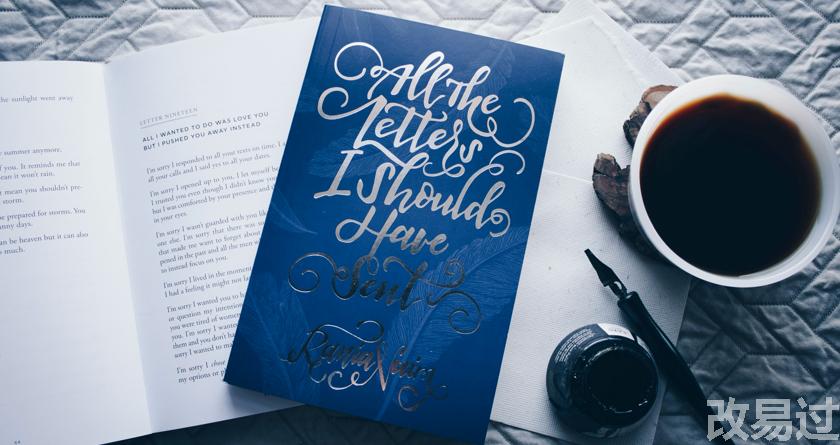 the sunlight went away
summer anymore.
you. It reminds me that
it won't rain.
mean you shouldn't pre-
storm.
be prepared for storms. You
days.
be heaven but it can also
much.
64
LETTER NINETEEN
ALL I WANTED TO DO WAS LOVE YOU
BUT I PUSHED YOU AWAY INSTEAD
I'm sorry I responded to all your texts on time. I
all your calls and I said yes to all your dates.
I'm sorry I opened up to you. I let myself be
I trusted you even though I didn't know you
but I was comforted by your presence and th
in your eyes.
I'm sorry I wasn't guarded with you like
one else. I'm sorry that there was so
that made me want to forget about
pened in the past and all the men w
to instead focus on you.
I'm sorry I lived in the moment
I had a feeling it might not las
I'm sorry I wanted you to b
or question my intention
you were tired of women
them and you don't ha
sorry I wanted to ma
I'm sorry I chose
my options or p
All The
Letters
I Should
Have
Sent
Rania Naim
改易过